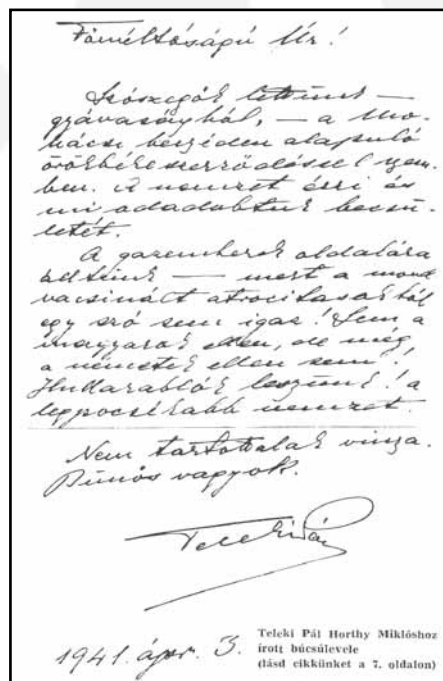 Főméltóságú Úr!
Szószegők lettünk —
gyávaságból, — a mo-
hácsi beszéden alapuló
örökbékeszerződéssel szem-
ben. A nemzet érzi és
mi odadobtuk becsü-
letét.
A gazemberek oldalára
álltunk — mert a mond
vacsinált atrocitásokból
egy szó sem igaz! Sem a
magyarok ellen, de még
a németek ellen sem!
Hullarablók leszünk! a
legpocsékabb nemzet.
Nem tartottalak vissza.
Bűnös vagyok.
Teleki Pál
1941. ápr. 3.
Teleki Pál Horthy Miklóshoz
írott búcsúlevele
(lásd cikkünket a 7. oldalon)